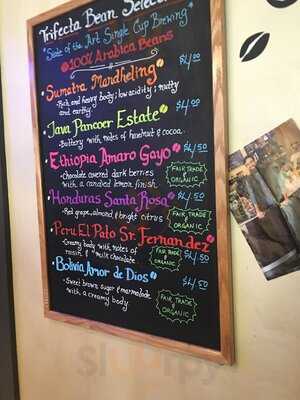 Trifecta Bean Selec
"State of the Art Single Cup Brewing"
*100% Arabica Beans
Sumatra Mandheling $4.00
- Rich and heavy body; low acidity; nutty
and earthy.
Java Pancoer Estate $4.00
- Buttery with notes of hazelnut & cocoa.
Ethiopia Amaro Gayo $4.50
- Chocolate covered dark berries
with a candied lemon finish.
FAIR TRADE
& ORGANIC
Honduras Santa Rosa $4.50
- Red grape, almond, & bright citrus
FAIR TRADE
& ORGANIC
Peru El Pato Sr. Fernandez
- Creamy body with notes of
raisin & milk chocolate
FAIR TRADE
& ORGANIC
$4.50
Bolivia Amor de Dios $4.50
- Sweet brown sugar & marmalade
with a creamy body.
FAIR TRADE
& ORGANIC